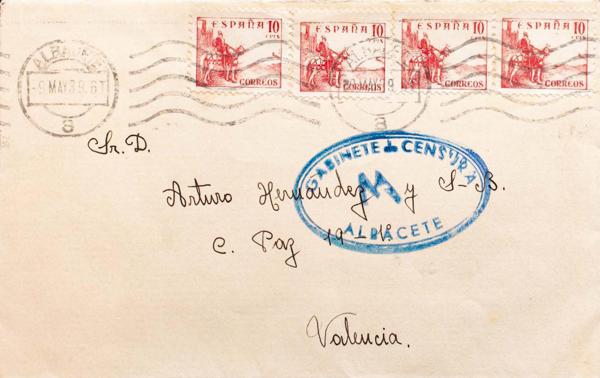 ESPAÑA 10 CTS CORREOS
ESPAÑA 10 CTS CORREOS
ESPAÑA 10 CTS CORREOS
ESPAÑA 10 CTS CORREOS
ALBACETE
-9.MAY39.6T
8
Sr. D.
GABINETE CENSURA
Arturo Hernández y S-B.
ALBACETE
C. Paz 19 - 1º
Valencia.